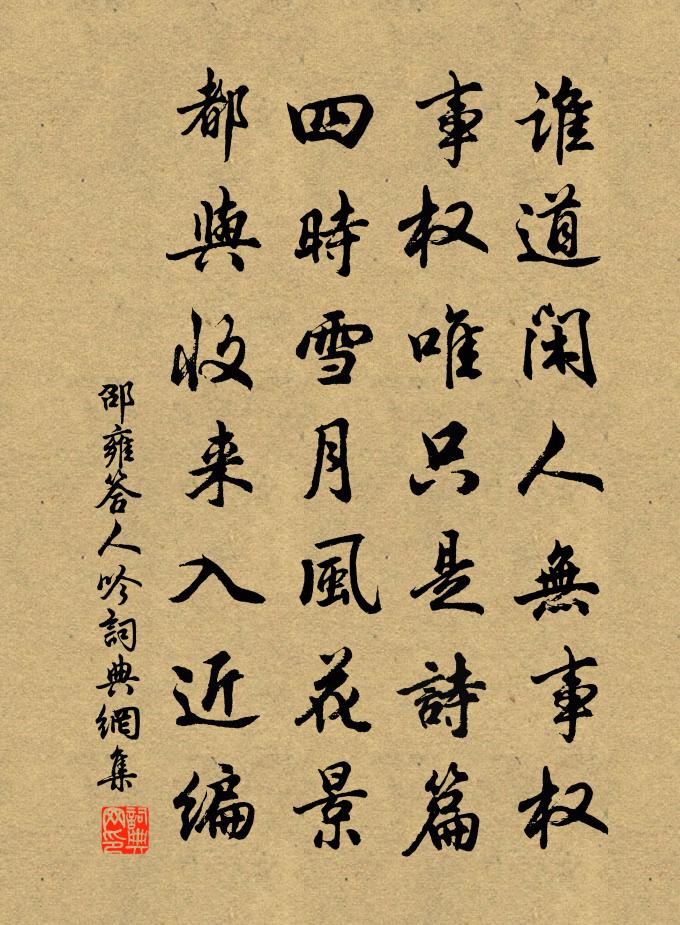 誰道閑人無事权
事权唯只是詩篇
四時雪月風花景
都與收来入近编
邵雍答人吟詞典網集
詞典网印